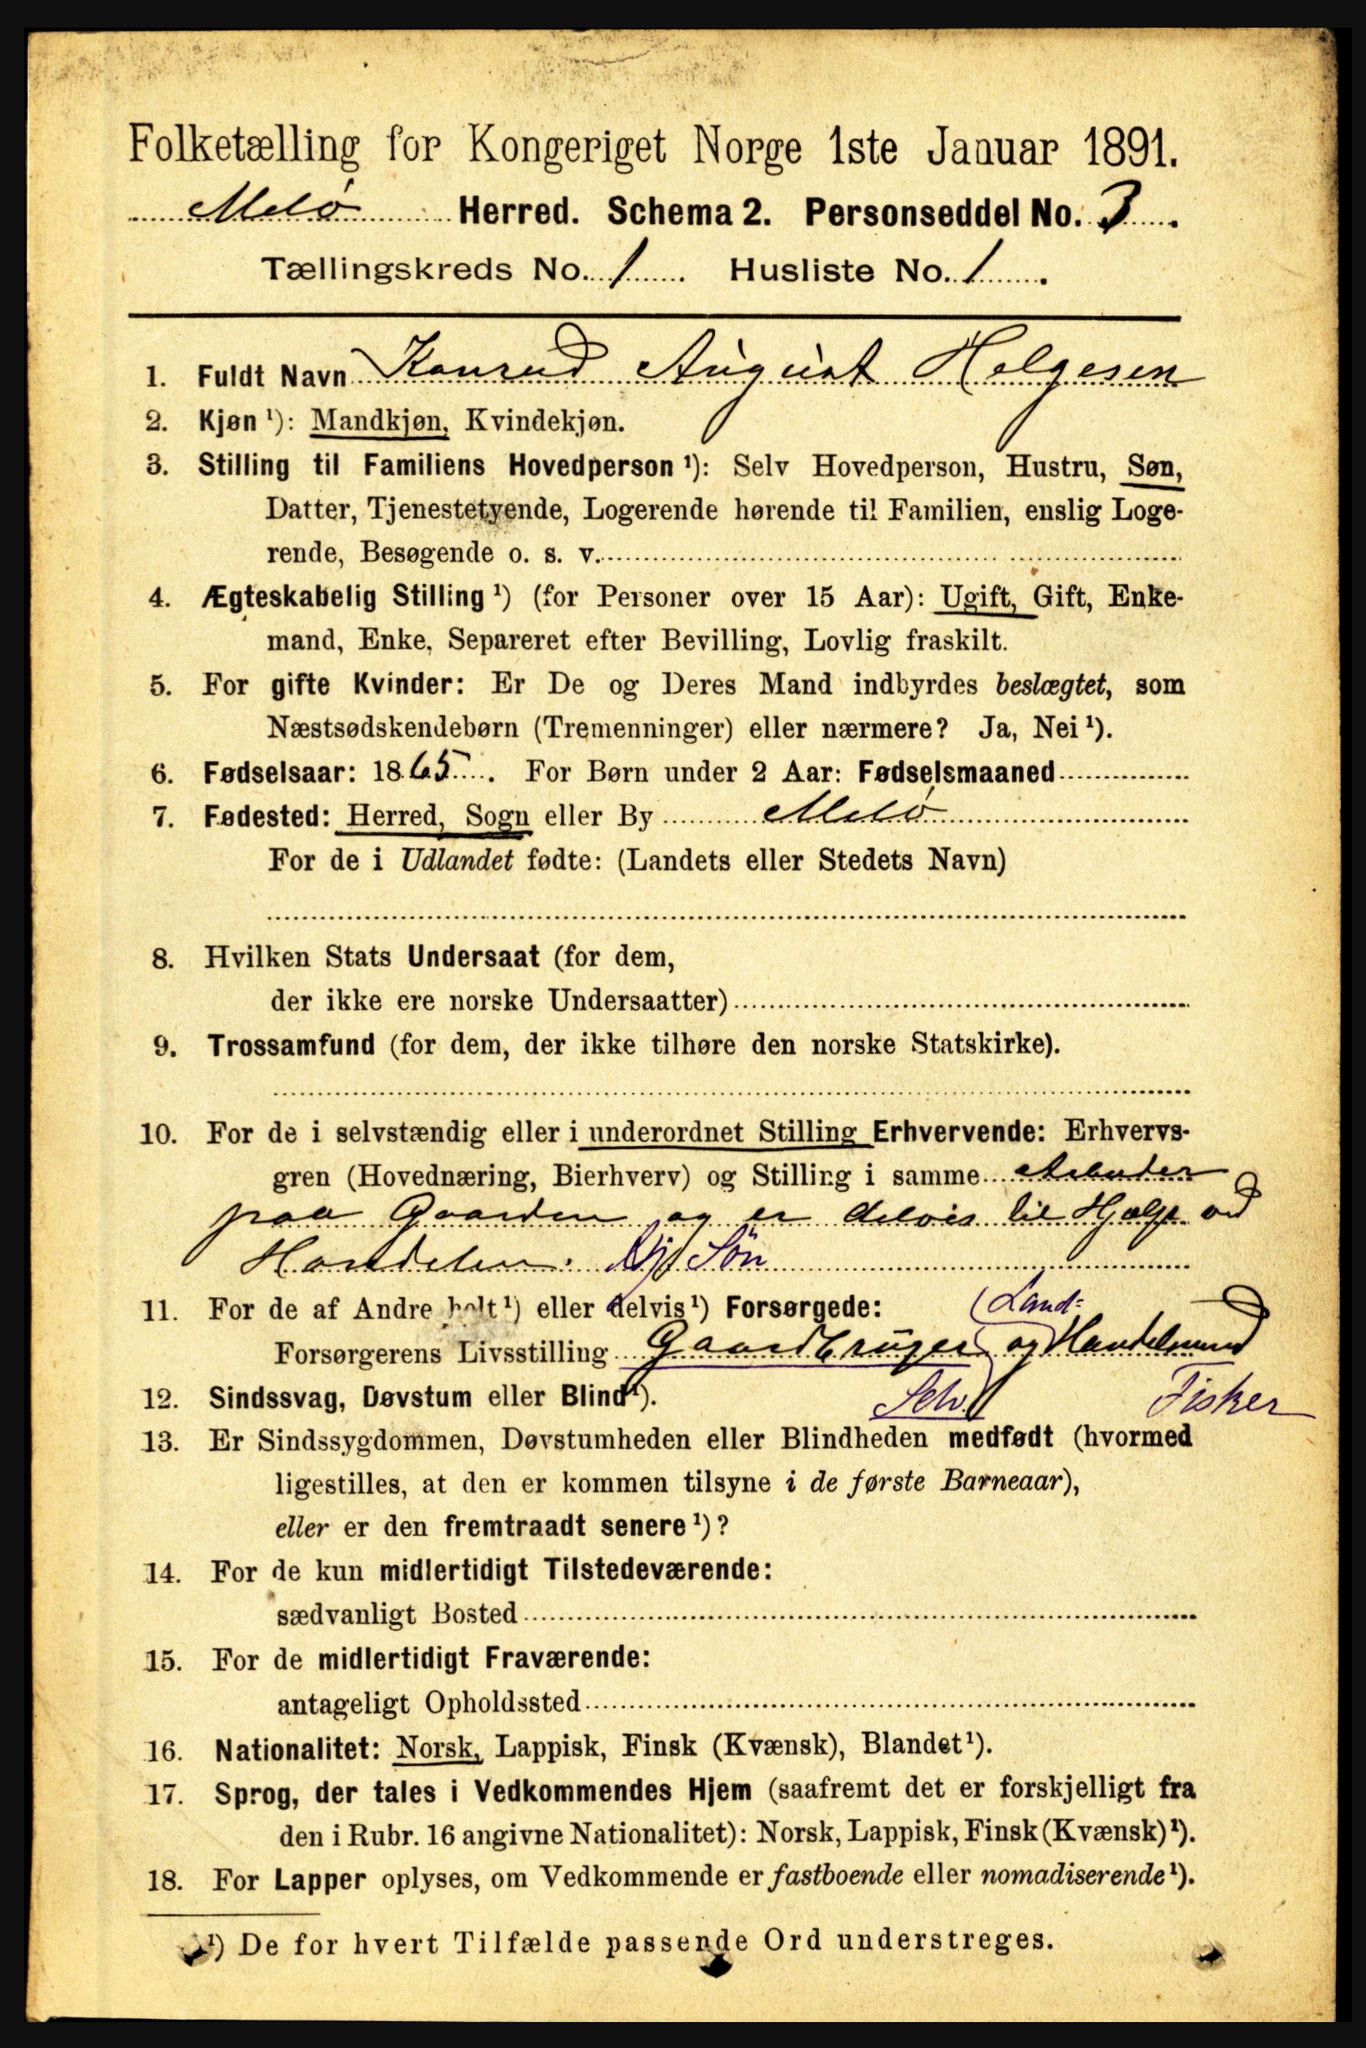 Folketælling for Kongeriget Norge 1ste Januar 1891.
Melö Herred. Schema 2. Personseddel No. 3.
Tællingskreds No. 1. Husliste No. 1.
1. Fuldt Navn Konrad August Helgesen
2. Kjøn ¹): Mandkjøn, Kvindekjøn.
3. Stilling til Familiens Hovedperson ¹): Selv Hovedperson, Hustru, Søn,
Datter, Tjenestetyende, Logerende hørende til Familien, enslig Loge-
rende, Besøgende o. s. v.
4. Ægteskabelig Stilling ¹) (for Personer over 15 Aar): Ugift, Gift, Enke-
mand, Enke, Separeret efter Bevilling, Lovlig fraskilt.
5. For gifte Kvinder: Er De og Deres Mand indbyrdes beslægtet, som
Næstsødskendebørn (Tremenninger) eller nærmere? Ja, Nei ¹).
6. Fødselsaar: 1865. For Børn under 2 Aar: Fødselsmaaned
7. Fødested: Herred, Sogn eller By Melö
For de i Udlandet fødte: (Landets eller Stedets Navn)
8. Hvilken Stats Undersaat (for dem,
der ikke ere norske Undersaatter)
9. Trossamfund (for dem, der ikke tilhøre den norske Statskirke).
10. For de i selvstændig eller i underordnet Stilling Erhvervende: Erhvervs-
gren (Hovednæring, Bierhverv) og Stilling i samme Arbeider
paa Gaarden og er delvis til Hjælp ved
Handelen. Søn
11. For de af Andre helt ¹) eller delvis ¹) Forsørgede: Land-
Forsørgerens Livsstilling Gaardbruger og Handelsmand
12. Sindssvag, Døvstum eller Blind ¹). Selv. Fisker
13. Er Sindssygdommen, Døvstumheden eller Blindheden medfødt (hvormed
ligestilles, at den er kommen tilsyne i de første Barneaar),
eller er den fremtraadt senere ¹)?
14. For de kun midlertidigt Tilstedeværende:
sædvanligt Bosted
15. For de midlertidigt Fraværende:
antageligt Opholdssted
16. Nationalitet: Norsk, Lappisk, Finsk (Kvænsk), Blandet ¹).
17. Sprog, der tales i Vedkommendes Hjem (saafremt det er forskjelligt fra
den i Rubr. 16 angivne Nationalitet): Norsk, Lappisk, Finsk (Kvænsk) ¹).
18. For Lapper oplyses, om Vedkommende er fastboende eller nomadiserende ¹).
¹) De for hvert Tilfælde passende Ord understreges.